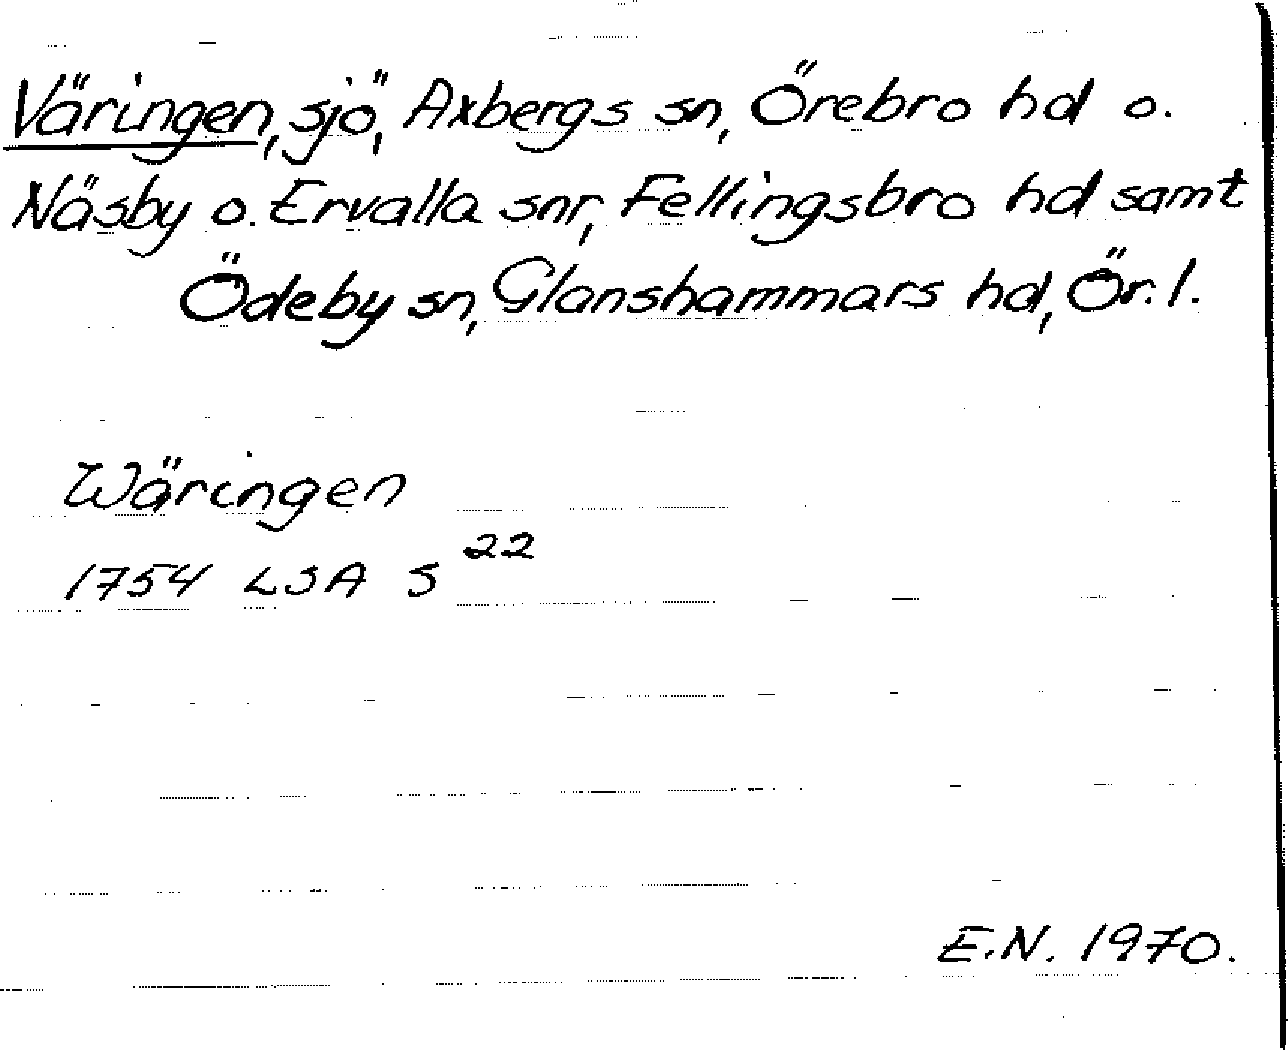 Väringen, sjö, Axbergs sn, Örebro hd o.
Näsby o. Ervalla snr, Fellingsbro hd samt
Ödeby sn, Glanshammars hd, Ör. l.
Wäringen
1754 LSA S 22
E.N. 1970.